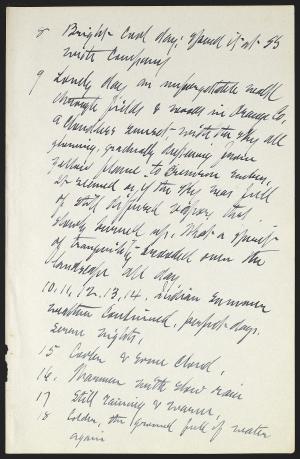 8 Bright cool day; spend it at 55
with company
9 Lovely day, an unforgettable walk
through fields & woods in Orange Co.
a cloudless sunset with the sky all
glowing, gradually deepening from
yellow flame to crimson embers,
it seemed as if the sky was full
of still diffused vapors that
slowly burned up. What a spirit
of tranquility brooded over the
landscape all day
10, 11, 12, 13, 14. Indian summer
weather continued, perfect days.
serene nights,
15 Cooler & some cloud,
16. Warmer with slow rain
17 Still raining & warm,
18 Colder, the ground full of water
again